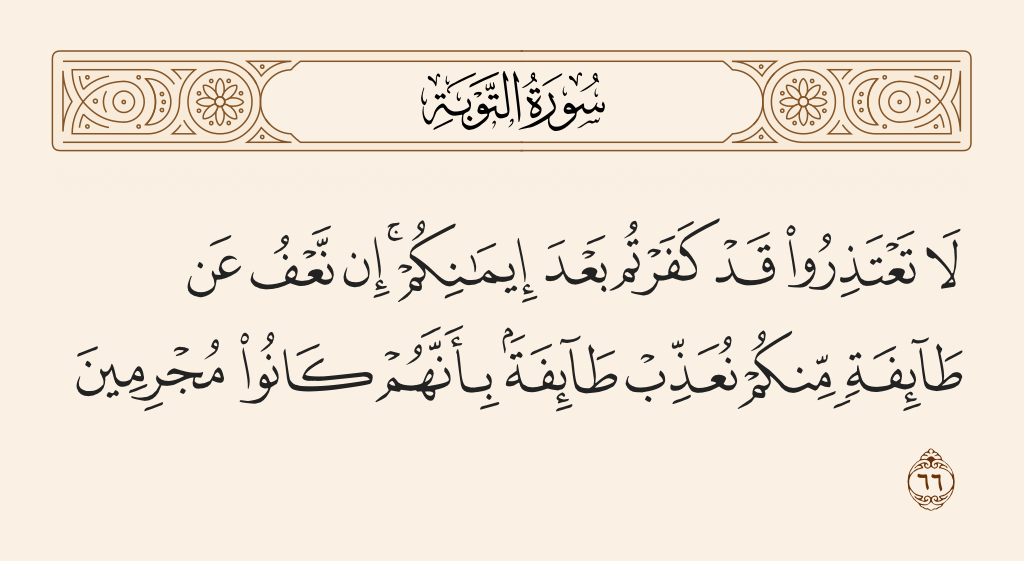 سُورَةُ التَّوۡبَةِ
لَا تَعۡتَذِرُواْ قَدۡ كَفَرۡتُم بَعۡدَ إِيمَٰنِكُمۡۚ إِن نَّعۡفُ عَن
طَآئِفَةٖ مِّنكُمۡ نُعَذِّبۡ طَآئِفَةَۢ بِأَنَّهُمۡ كَانُواْ مُجۡرِمِينَ
٦٦